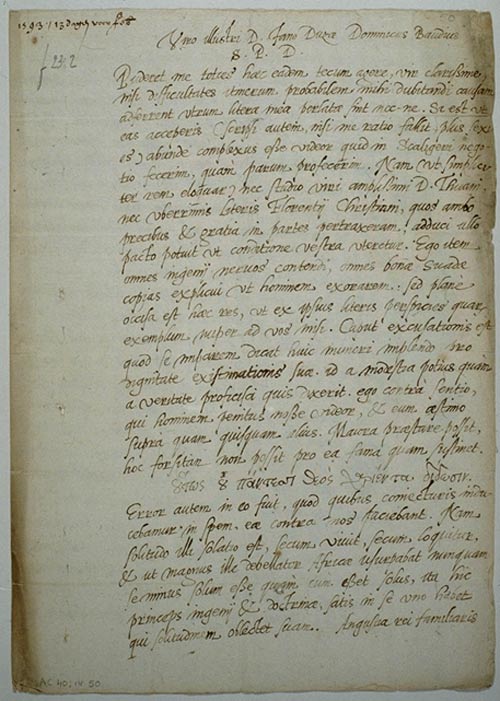 Viro illustri D. Jano Duzæ Dominicus Baudius
S. P. D.
Pideret me toties hæc eadem tecum agere, vir clarissime,
nisi difficultates itinerum probabilem mihi dubitandi causam
adferrent utrum literæ meæ perlatæ sint nec-ne. Si est ut
eas acceperis (Scripsi autem, nisi me ratio fallit, plus sex
abunde complexus esse videor quid in Scaligeri nego
tio fecerim, quàm parum profecerim. Nam (ut simplici
ter rem eloquar) nec studio viri amplissimi D. Thuani,
nec uberrimis literis Florentij Christiani, quos ambo
precibus & gratia in partes pertraxeram, adduci ullo
pacto potuit ut conditione vestra uteretur. Ego item
omnes ingenij nervos contendi, omnes bonæ Suadæ
copias explicui ut hominem exorarem. Sed planè
occisa est hæc res, ut ex ipsius literis perspicies quar.
exemplum nuper ad vos misi. Caput excusationis est
quod se imparem dicat huic muneri implendo pro
dignitate existimationis suæ. id à modestia potius quàm
a veritate proficisci quis dixerit. ego contrà sentio,
qui hominem penitus nosse videor, & eum æstimo
supra quàm quisquam alius. Maiora præstare possit,
hoc forsitan non possit pro ea fama quam sustinet.
Error autem in eo fuit, quod quibus coniecturis indu
cebamur in spem, eæ contra nos faciebant. Nam
solitudo illi solatio est, secum vivit, secum loquitur,
& ut magnus ille debellator Africæ usurpabat nunquam
se minus solum esse quàm cum esset solus, ita hic
princeps ingenij & doctrinæ, satis in se uno habet
qui solitudinem oblectet suam. Angustia rei familiaris
AC 40, IV. 50